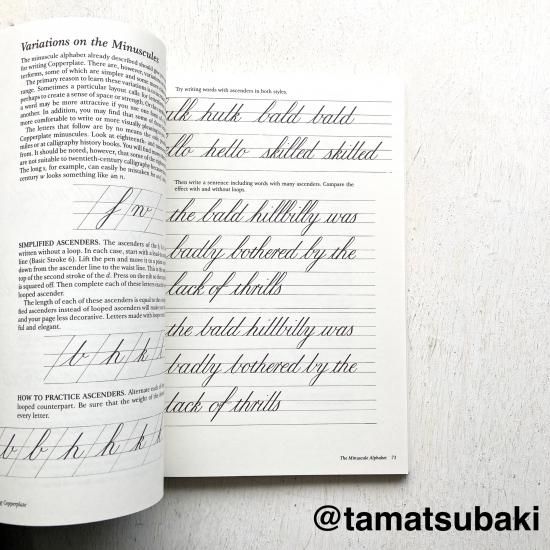 Variations on the Minuscules
The minuscule alphabet already described should
for writing Copperplate. There are, however,
terforms, some of which are simpler and some more
range. Sometimes a particular layout calls for
perhaps to create a sense of space or strength. Or
a word may be more attractive if you use one form
another. In addition, you may find that some of
more comfortable to write or more visually
The letters that follow are by no means the only
Copperplate minuscules. Look at eighteenth- and
miles or at calligraphy history books. You will find
from. It should be noted, however, that some of
are not suitable to twentieth-century calligraphy because
The long s, for example, can easily be mistaken for
century w looks something like an n.
f w
SIMPLIFIED ASCENDERS. The ascenders of the
written without a loop. In each case, start with a
line (Basic Stroke 6). Lift the pen and move it
down from the ascender line to the waist line. This is the
top of the second stroke of the d. Press on the nib
is squared off. Then complete each of these letters
looped ascender.
The length of each of these ascenders is equal to the
fied ascenders instead of looped ascenders will make
and your page less decorative. Letters made with loops
ful and elegant.
b h k
HOW TO PRACTICE ASCENDERS. Alternate each of
looped counterpart. Be sure that the weight of the
every letter.
b b h h k
Copperplate
Try writing words with ascenders in both styles.
ulk hulk bald bald
llo hello skilled skilled
Then write a sentence including words with many ascenders. Compare the
effect with and without loops.
the bald hillbilly was
badly bothered by the
lack of thrills
the bald hillbilly was
badly bothered by the
lack of thrills
The Minuscule Alphabet 73
@tamatsubaki